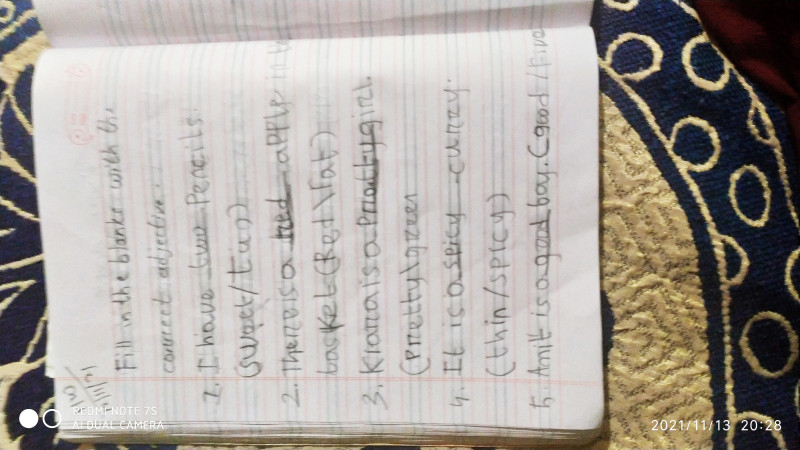 HW
11/11/21
Fill in the blanks with the
correct adjective.
1. I have two Pencils.
(Sweet/two)
2. There is a red apple in
basket (Red\Fat)
3. Kiara is a Pretty girl.
(Pretty\green
4. It is a spicy curry.
(thin/spicy)
5. Amit is a good boy. (good/Five
REDMI NOTE 7S
AI DUAL CAMERA
2021/11/13 20:28